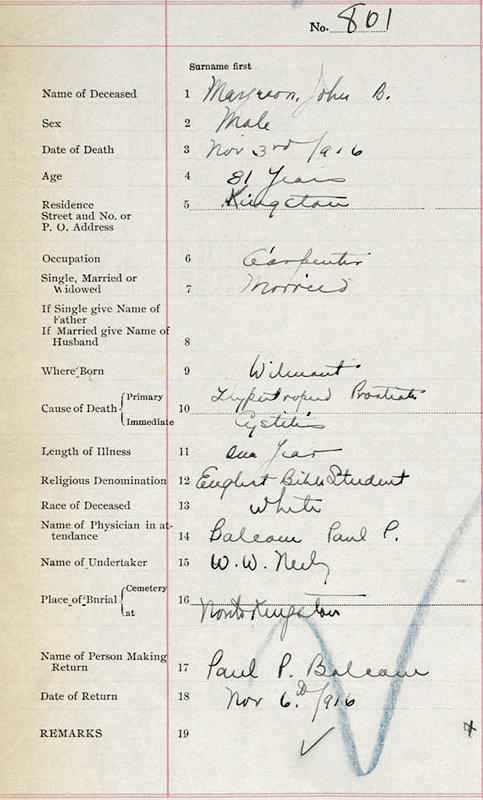 No. 801
Surname first
Name of Deceased 1 John B.
Sex 2 Male
Date of Death 3 Nov 3rd 1916
Age 4 81 Years
Residence 5 Kingston
Street and No. or
P. O. Address
Occupation 6 Carpenter
Single, Married or
Widowed 7 Married
If Single give Name of
Father
If Married give Name of
Husband 8
Where Born 9 Wilmont
Cause of Death Primary 10 Prostate
Immediate Cystitis
Length of Illness 11 One Year
Religious Denomination 12 Bible Student
Race of Deceased 13 White
Name of Physician in at-
tendance 14 Balcom Paul P.
Name of Undertaker 15 W. W. Neily
Place of Burial Cemetery 16
at Kingston
Name of Person Making
Return 17 Paul P. Balcom
Date of Return 18 Nov 6. 1916
REMARKS 19